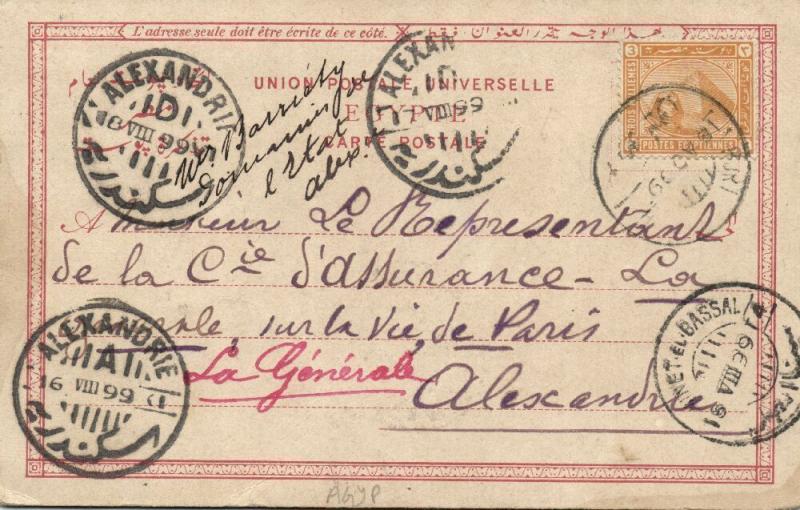 L'adresse seule doit être écrite de ce côté.
UNION POSTALE UNIVERSELLE
EGYPTE
CARTE POSTALE
POSTES EGYPTIENNES
3
٣
ALEXANDRIE
D
VIII 99
اسكندرية
ALEXAN
D
VIII 99
اسكندرية
Wm Barriély
Domaines de
l'Etat
Alex.
A monsieur Le Représentant
de la Cie d'assurance - La
Générale, sur la vie, de Paris
La Générale
Alexandrie
ALEXANDRIE
A
16 VIII 99
اسكندرية
MINET-EL-BASSAL
16 VIII 99
AGYP